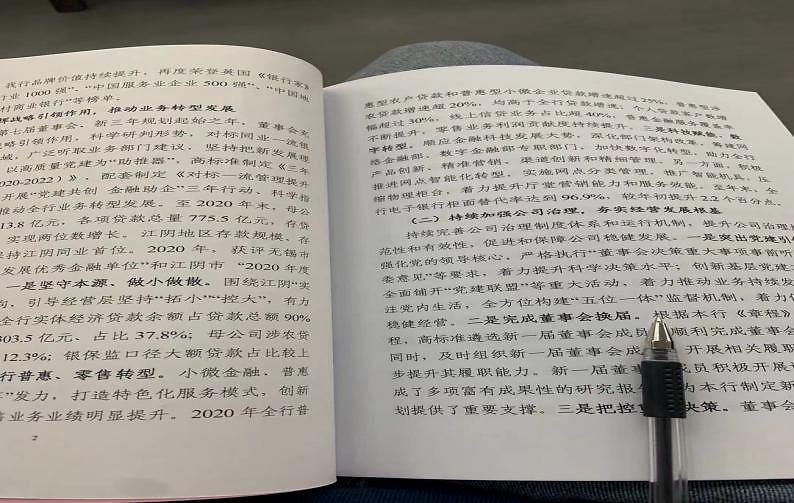 我行品牌价值持续提升，再度荣登英国《银行家》
行业 1000 强”、“中国服务业企业 500 强”、“中国地
村商业银行”等榜单。
挥战略引领作用，推动业务转型发展
第七届董事会、新三年规划起始之年，董事会充
略引领作用，科学研判形势，对标同业一流银
域，广泛听取业务部门建议，坚持把新发展理
以高质量党建为“助推器”，高标准制定《三年
2020-2022）》，配套制定《对标一流管理提升
开展“党建共创 金融助企”三年行动、科学指
推动全行业务转型发展。至 2020 年末，母公
13.8 亿元，各项贷款总量 775.5 亿元，存贷
实现两位数增长。江阴地区存款规模、存
坚持江阴同业首位。2020 年，获评无锡市
发展优秀金融单位”和江阴市“2020 年度
一是坚守本源、做小做散。围绕江阴“实
向，引导经营层坚持“拓小”“控大”，有力
全行实体经济贷款余额占贷款总额 90%
303.5 亿元、占比 37.8%；母公司涉农贷
12.3%；银保监口径大额贷款占比较上
行普惠、零售转型。小微金融、普惠
”发力，打造特色化服务模式，创新
业务业绩明显提升。2020 年全行普
2
惠型农户贷款和普惠型小微企业贷款增速超过25%，普惠型涉
农贷款增速超 20%，均高于全行贷款增速；个人贷款客户数增
幅超过 30%，线上信贷业务占比超 40%，普惠金融服务覆盖率
不断提升，零售业务利润贡献度持续提升。三是科技赋能、数
字转型。顺应金融科技发展大势，深化部门架构改革，筹建网
络金融部、数字金融部专职部门，加快数字化转型，助力全行
产品创新、精准营销、渠道创新和精细管理。另一方面，积极
推进网点智能化转型，实施网点分类管理，推广智能机具，压
缩物理柜台，着力提升厅堂营销能力和服务效能。至年末，全
行电子银行柜面替代率达到 96.9%，较年初提升 2.2 个百分点。
（二）持续加强公司治理，夯实经营发展根基
持续完善公司治理制度体系和运行机制，提升公司治理规
范性和有效性，促进和保障公司稳健发展。一是突出党建引
强化党的领导核心。严格执行“董事会决策重大事项事前听
委意见”等要求，着力提升科学决策水平；创新基层党建
全面铺开“党建联盟”等重大活动，着力推动业务持续发
注党内生活，全方位构建“五位一体”监督机制，着力
稳健经营。二是完成董事会换届。根据本行《章程》
程，高标准遴选新一届董事会成员，顺利完成董事会
同时，及时组织新一届董事会成 开展相关履职
步提升其履职能力。新一届董事 成员积极开展
成了多项富有成果性的研究报 为本行制定新
划提供了重要支撑。三是把控重 决策。董事会